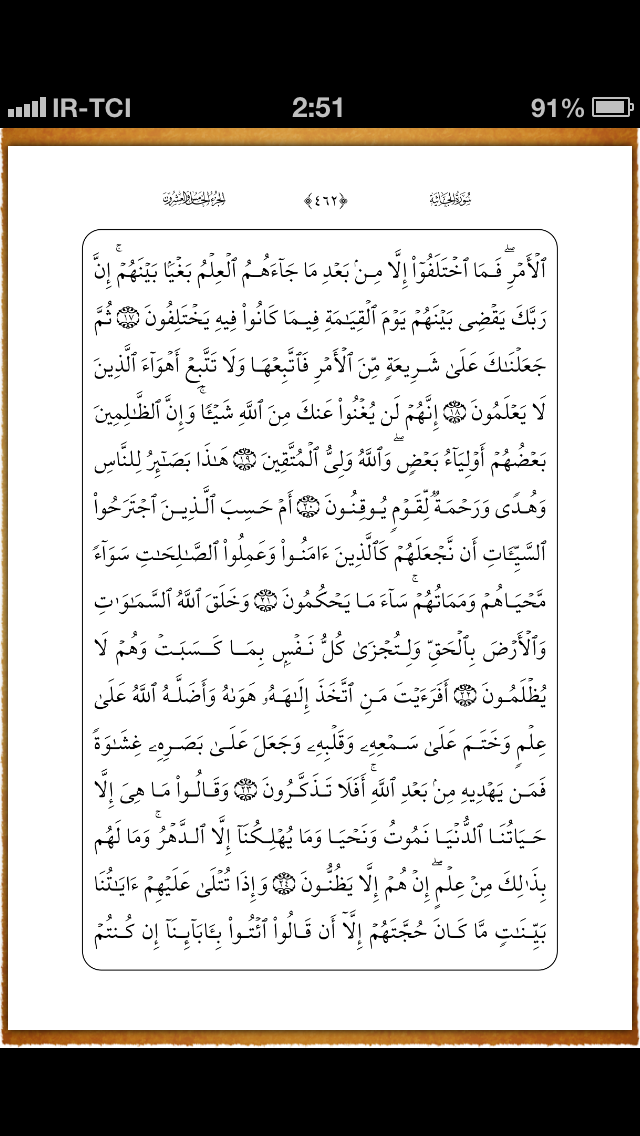 IR-TCI 2:51 91%
سُورَةُ الجَاثِيَةِ ﴿٤٦٢﴾ الجُزْءُ الخَامِسُ وَالعِشْرُونَ
ٱلْأَمْرِۖ فَمَا ٱخْتَلَفُوٓا۟ إِلَّا مِنۢ بَعْدِ مَا جَآءَهُمُ ٱلْعِلْمُ بَغْيًۢا بَيْنَهُمْۚ إِنَّ
رَبَّكَ يَقْضِى بَيْنَهُمْ يَوْمَ ٱلْقِيَـٰمَةِ فِيمَا كَانُوا۟ فِيهِ يَخْتَلِفُونَ ١٧ ثُمَّ
جَعَلْنَـٰكَ عَلَىٰ شَرِيعَةٍ مِّنَ ٱلْأَمْرِ فَٱتَّبِعْهَا وَلَا تَتَّبِعْ أَهْوَآءَ ٱلَّذِينَ
لَا يَعْلَمُونَ ١٨ إِنَّهُمْ لَن يُغْنُوا۟ عَنكَ مِنَ ٱللَّهِ شَيْـًٔاۚ وَإِنَّ ٱلظَّـٰلِمِينَ
بَعْضُهُمْ أَوْلِيَآءُ بَعْضٍۖ وَٱللَّهُ وَلِىُّ ٱلْمُتَّقِينَ ١٩ هَـٰذَا بَصَـٰٓئِرُ لِلنَّاسِ
وَهُدًى وَرَحْمَةٌ لِّقَوْمٍ يُوقِنُونَ ٢٠ أَمْ حَسِبَ ٱلَّذِينَ ٱجْتَرَحُوا۟
ٱلسَّيِّـَٔاتِ أَن نَّجْعَلَهُمْ كَٱلَّذِينَ ءَامَنُوا۟ وَعَمِلُوا۟ ٱلصَّـٰلِحَـٰتِ سَوَآءً
مَّحْيَاهُمْ وَمَمَاتُهُمْۚ سَآءَ مَا يَحْكُمُونَ ٢١ وَخَلَقَ ٱللَّهُ ٱلسَّمَـٰوَٰتِ
وَٱلْأَرْضَ بِٱلْحَقِّ وَلِتُجْزَىٰ كُلُّ نَفْسٍۭ بِمَا كَسَبَتْ وَهُمْ لَا
يُظْلَمُونَ ٢٢ أَفَرَءَيْتَ مَنِ ٱتَّخَذَ إِلَـٰهَهُۥ هَوَىٰهُ وَأَضَلَّهُ ٱللَّهُ عَلَىٰ
عِلْمٍ وَخَتَمَ عَلَىٰ سَمْعِهِۦ وَقَلْبِهِۦ وَجَعَلَ عَلَىٰ بَصَرِهِۦ غِشَـٰوَةً
فَمَن يَهْدِيهِ مِنۢ بَعْدِ ٱللَّهِۚ أَفَلَا تَذَكَّرُونَ ٢٣ وَقَالُوا۟ مَا هِىَ إِلَّا
حَيَاتُنَا ٱلدُّنْيَا نَمُوتُ وَنَحْيَا وَمَا يُهْلِكُنَآ إِلَّا ٱلدَّهْرُۚ وَمَا لَهُم
بِذَٰلِكَ مِنْ عِلْمٍۖ إِنْ هُمْ إِلَّا يَظُنُّونَ ٢٤ وَإِذَا تُتْلَىٰ عَلَيْهِمْ ءَايَـٰتُنَا
بَيِّنَـٰتٍ مَّا كَانَ حُجَّتَهُمْ إِلَّآ أَن قَالُوا۟ ٱئْتُوا۟ بِـَٔابَآئِنَآ إِن كُنتُمْ